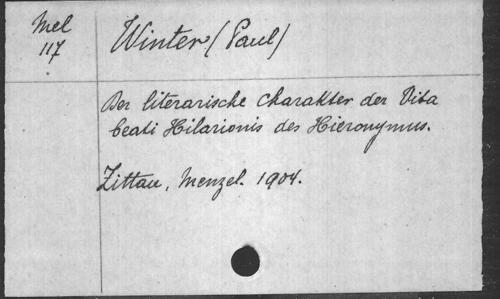 Mel
117
Winter (Paul)
Der literarische Charakter der Vita
beati Hilarionis des Hieronymus.
Zittau, Menzel. 1904.